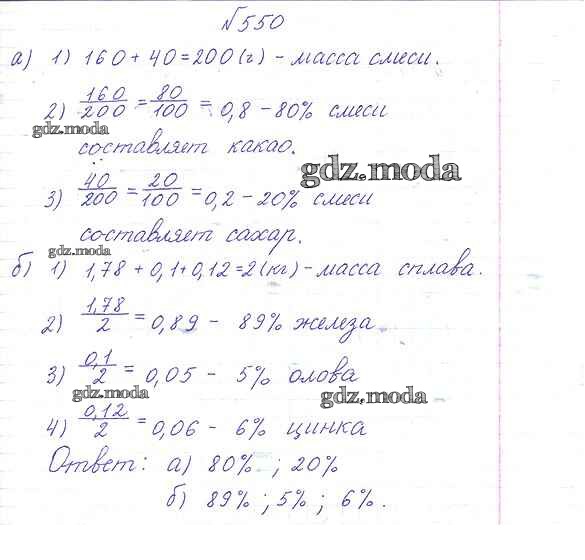 №550
а) 1) 160 + 40 = 200 (г) - масса смеси.
2) 160/200 = 80/100 = 0,8 - 80% смеси
gdz.moda
составляет какао.
gdz.moda
3) 40/200 = 20/100 = 0,2 - 20% смеси
составляет сахар.
gdz.moda
б) 1) 1,78 + 0,1 + 0,12 = 2 (кг) - масса сплава.
2) 1,78/2 = 0,89 - 89% железа
3) 0,1/2 = 0,05 - 5% олова
gdz.moda
gdz.moda
4) 0,12/2 = 0,06 - 6% цинка
Ответ: а) 80% ; 20%
б) 89% ; 5% ; 6%.